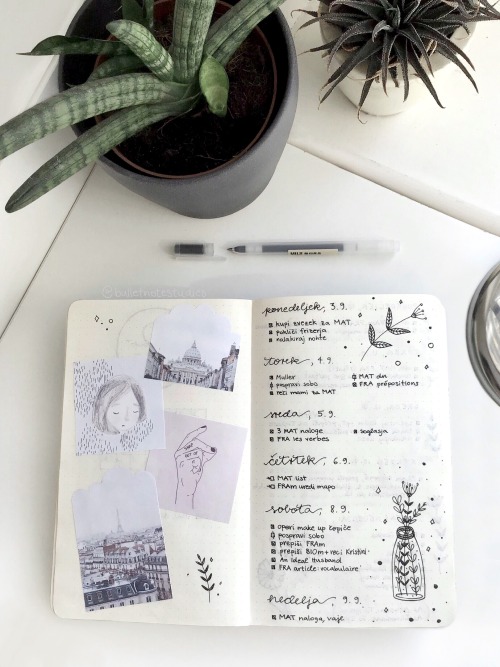 MUJI 0.38
ponedeljek, 3.9.
kupi zvezek za MAT
pokliči frizerja
nalakiraj nohte
torek, 4.9.
Müller
pospravi sobo
reci mami za MAT
MAT dn
FRA prépositions
sreda, 5.9.
3 MAT naloge
FRA les verbes
soglasja
četrtek, 6.9.
MAT list
FRAm uredi mapo
sobota, 8.9.
operi make up čopiče
pospravi sobo
prepiši FRAm
prepiši BIOm + reci Kristini
An Ideal Husband
FRA article: vocabulaire
nedelja, 9.9.
MAT naloga, vaje